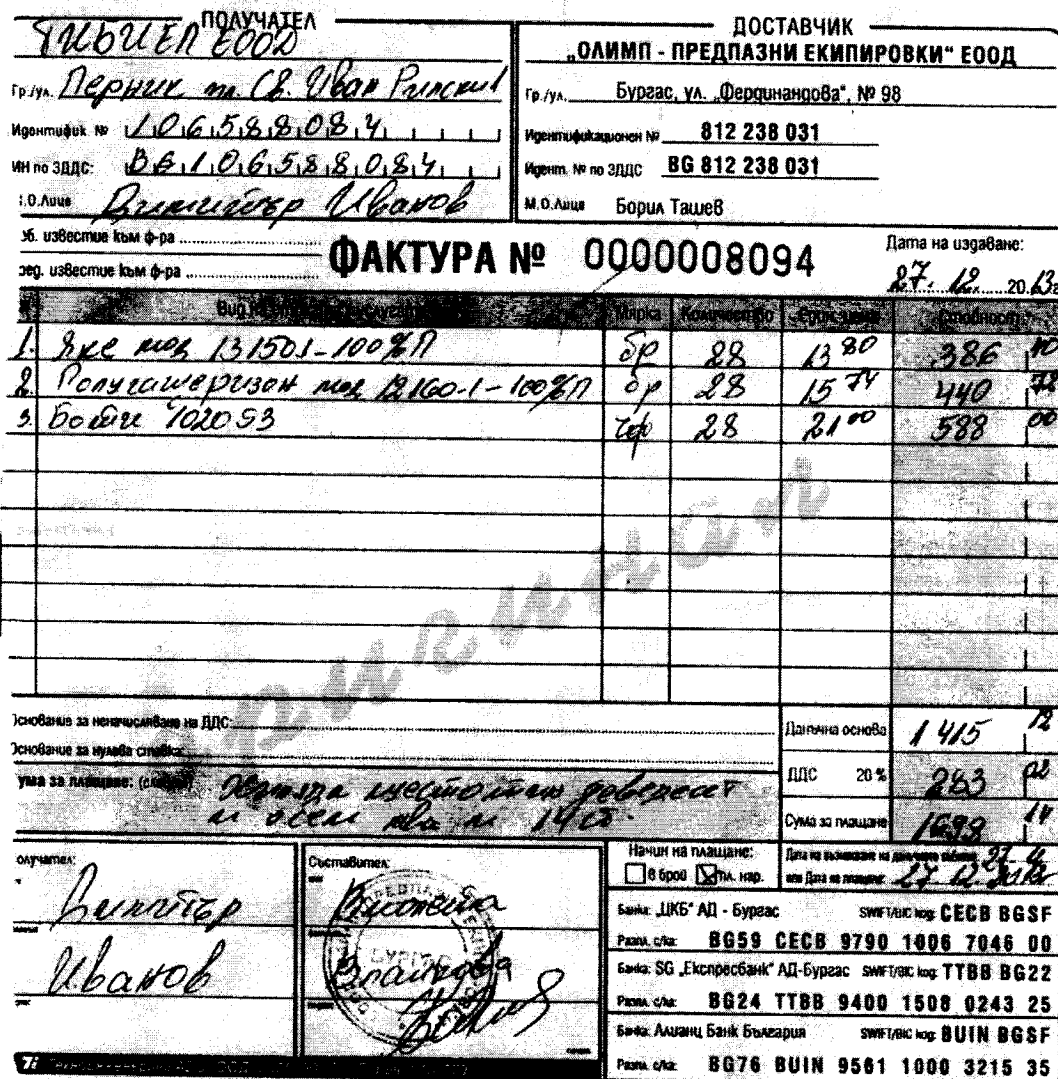 ПОЛУЧАТЕЛ
ЕООД
Гр./ул. Перник пл. Св. Иван Рилски
Идентифик. № 106588084
ИН по ЗДДС: BG106588084
.О.Лице Димитър Иванов
ДОСТАВЧИК
„ОЛИМП - ПРЕДПАЗНИ ЕКИПИРОВКИ“ ЕООД
Гр./ул. Бургас, ул. „Фердинандова“, № 98
Идентификационен № 812 238 031
Идент. № по ЗДДС BG 812 238 031
М.О.Лице Борил Ташев
об. известие към ф-ра
ред. известие към ф-ра
ФАКТУРА № 0000008094
Дата на издаване:
27. 12. 2013г
Мярка Количество Един. цена Стойност
1. Яке мод 131501-100%П бр 28 13 80 386 40
2. Полугащеризон мод 12160-1-100%П бр 28 15 74 440 72
3. Боти 702093 чф 28 21 00 588 00
Оригинал
Основание за неначисляване на ДДС:
Основание за нулева ставка:
Данъчна основа 1415 12
ДДС 20% 283 02
Сума за плащане 1698 14
ума за плащане: (словом) Хиляда шестотин деведесет
и осем лва и 14 ст.
олучател:
Димитър
Иванов
Съставител:
БУРГАС
Начин на плащане:
в брой пл. нар.
Дата на възникване на данъчното събитие
или Дата на плащане: 27.12.
Банка: „ЦКБ“ АД - Бургас SWIFT/BIC код: CECB BGSF
Разпл. с/ка: BG59 CECB 9790 1006 7046 00
Банка: SG „Експресбанк“ АД-Бургас SWIFT/BIC код: TTBB BG22
Разпл. с/ка: BG24 TTBB 9400 1508 0243 25
Банка: Алианц Банк България SWIFT/BIC код: BUIN BGSF
Разпл. с/ка: BG76 BUIN 9561 1000 3215 35